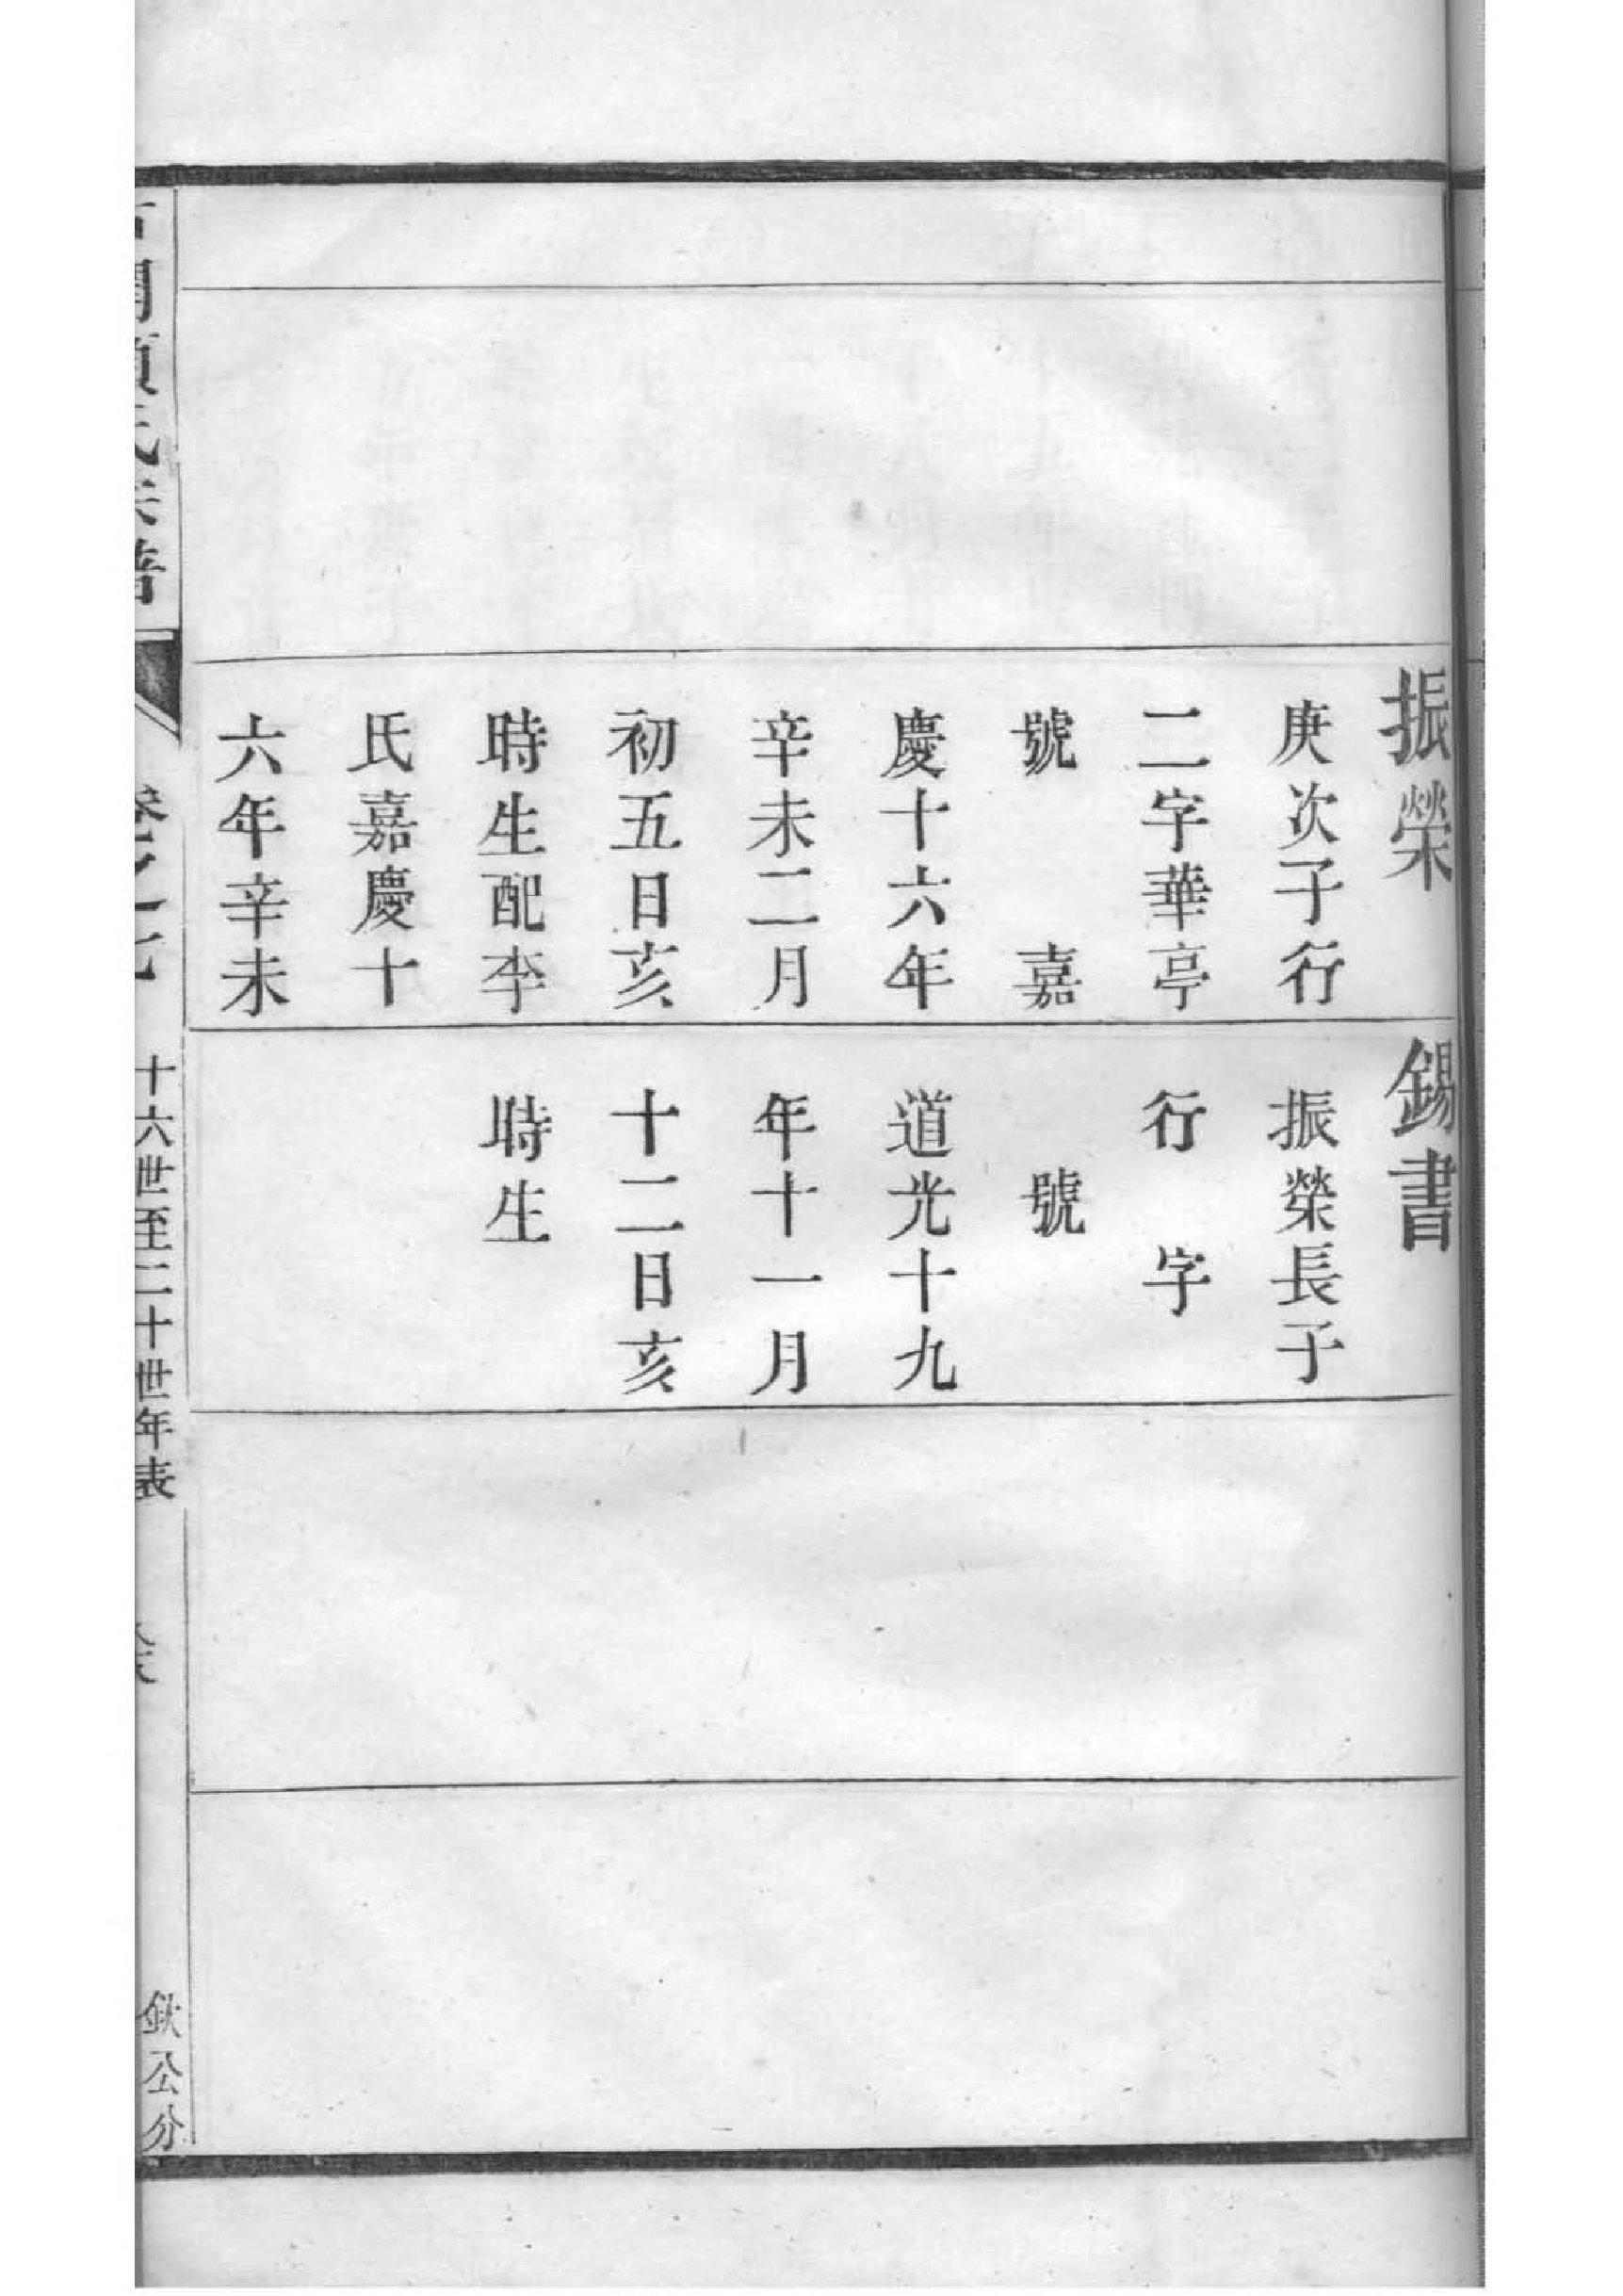 振榮
庚次子行
二字華亭
號　　嘉
慶十六年
辛未二月
初五日亥
時生配李
氏嘉慶十
六年辛未
錫書
振榮長子
行　字
號
道光十九
年十一月
十二日亥
時生
氏宗譜
卷之
十六世至二十世年表
欽公分